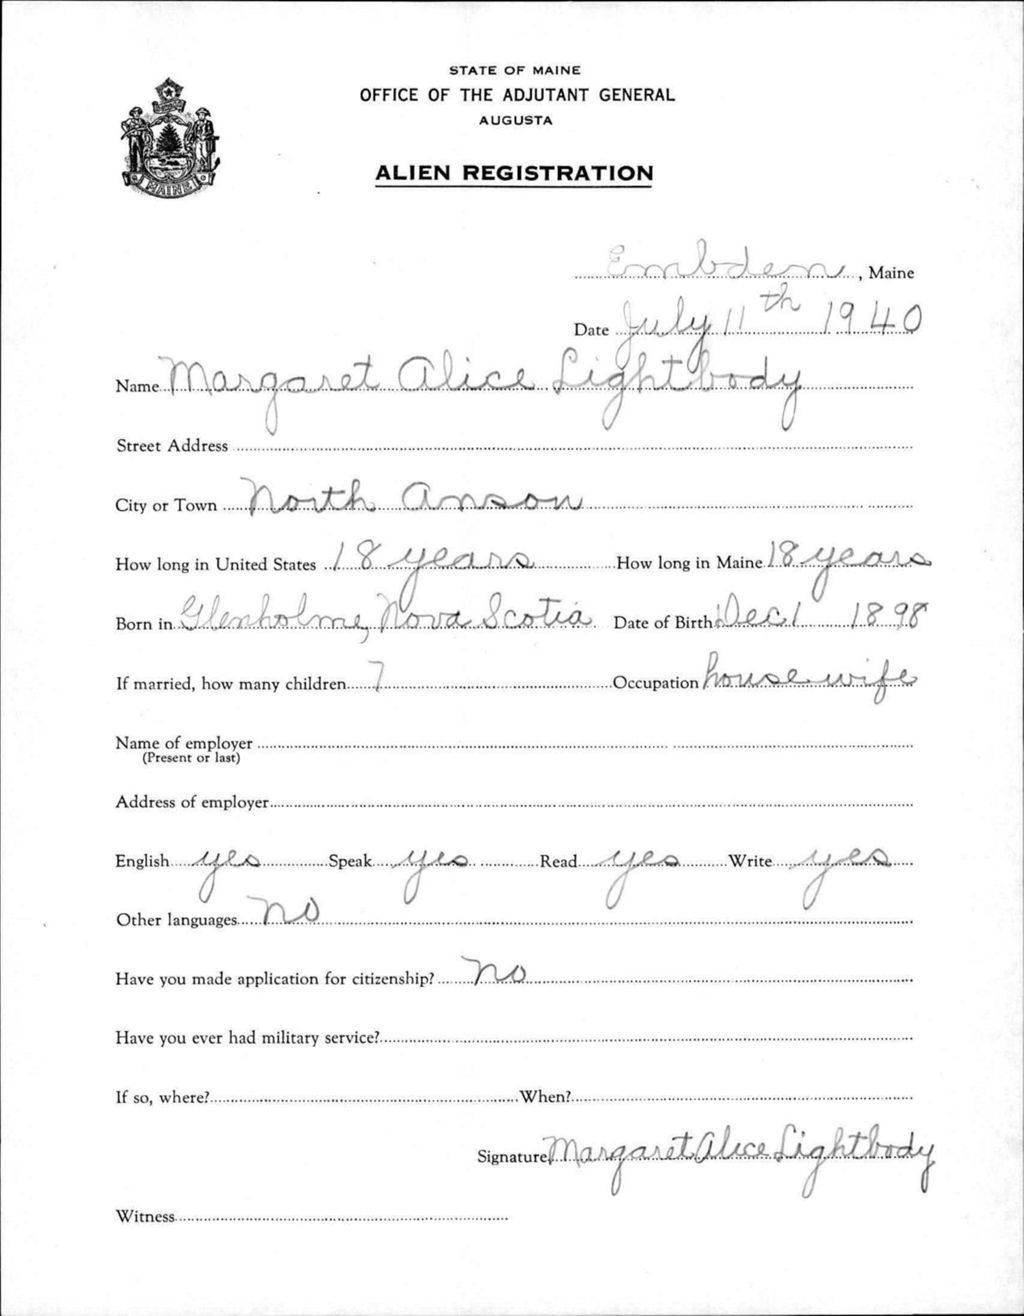 STATE OF MAINE
OFFICE OF THE ADJUTANT GENERAL
AUGUSTA
ALIEN REGISTRATION
MAINE
Embden, Maine
Date July 11th 1940
Name Margaret Alice Lightbody
Street Address
City or Town North Anson
How long in United States 18 years How long in Maine 18 years
Born in Glenholme, Nova Scotia Date of Birth Dec 1 1898
If married, how many children 7 Occupation house wife
Name of employer
(Present or last)
Address of employer
English yes Speak yes Read yes Write yes
Other languages no
Have you made application for citizenship? no
Have you ever had military service?
If so, where? When?
Signature Margaret Alice Lightbody
Witness